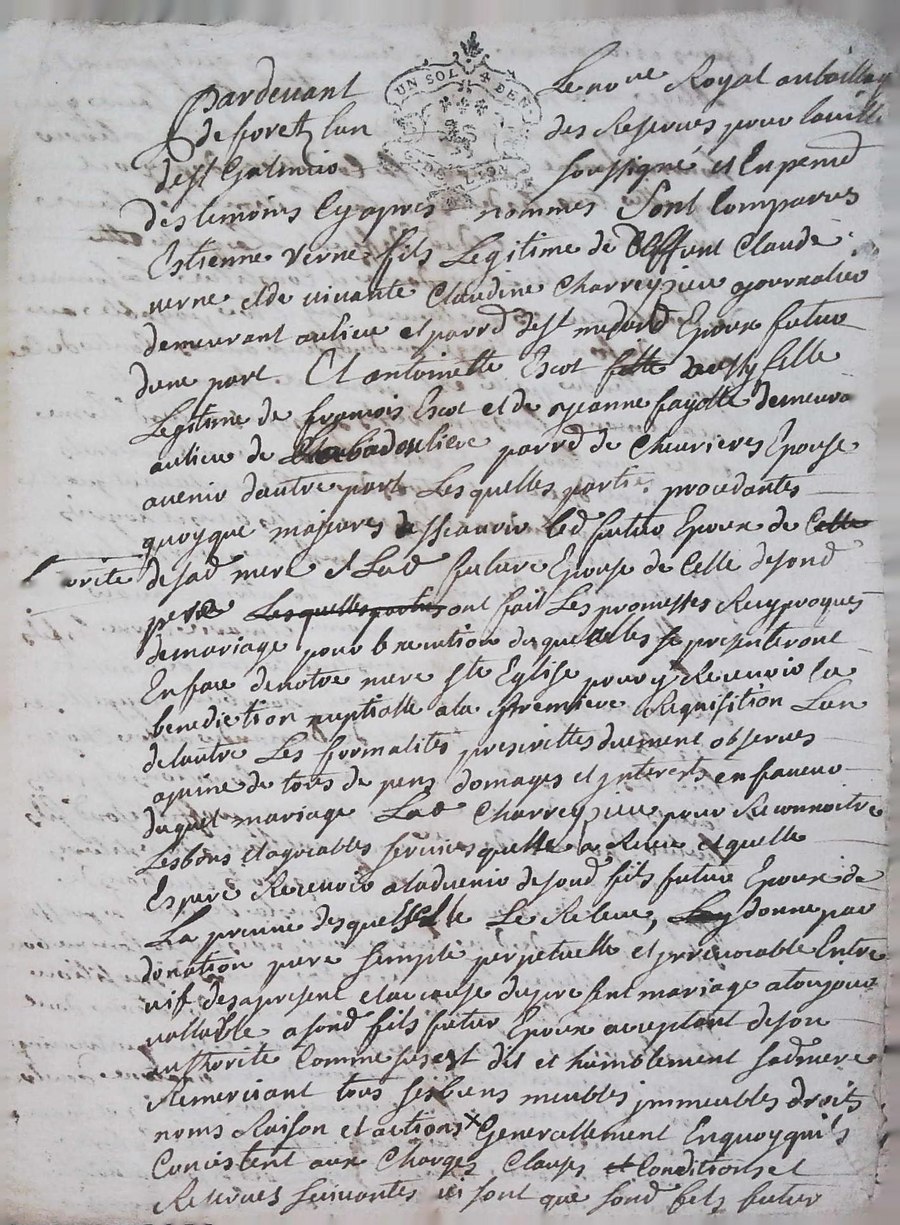 Pardevant Le nore Royal aubailla
de foretz lun des Reservés pour laville
de st Galmier soussigné et En presence
des temoins Cy apres nommés Sont Comparus
UN SOL 4 DEN
DE LYON
Estienne verne fils Legitime de deffunt Claude
verne et de vivante Claudine Charreyzieu journalier
demeurant aulieu et parrd de st medard Epoux futur
dune part Et antoinette Escot fille aussy fille
Legitime de francois Escot et de Jeanne fayolle demeurt
aulieu de parrd de Chevrieres Epouse
avenir dautre part Lesquelles parties procedantes
quoyque majeures a sscavoir led futur Epoux de Celle
orité de sad mere & Lad future Epouse de Celle desond
pere Lesquelles parties ont fait Les promesses Reciproques
de mariage pour lexecution desquelles se presenteront
En face de notre mere ste Eglise pour y Recevoir la
benediction nuptialle ala premiere Requisition Lun
delautre Les formalités prescrittes duement observés
apeine de tous depens domages et jnterets en faveur
duquel mariage Lad Charreyzieu pour Reconnoitre
Lesbons et agreables services quelle a Receu et quelle
Espere Recevoir aladvenir desond fils futur Epoux de
La preuve desquels elle Le Releve, donne par
donation pure simple perpetuelle et jrrevocable Entre
vif des apresent et acause dupresent mariage a toujours
vallable a sond fils futur Epoux acceptant de son
authorité Comme sus est dit et humblement sadmere
Remerciant tous ses biens meubles jmmeubles droits
noms Raison et actions x Generallement Enquoy quils
Concistent aux Charges Clauses et Conditions et
Reserves suivantes qui sont que sond fils futur